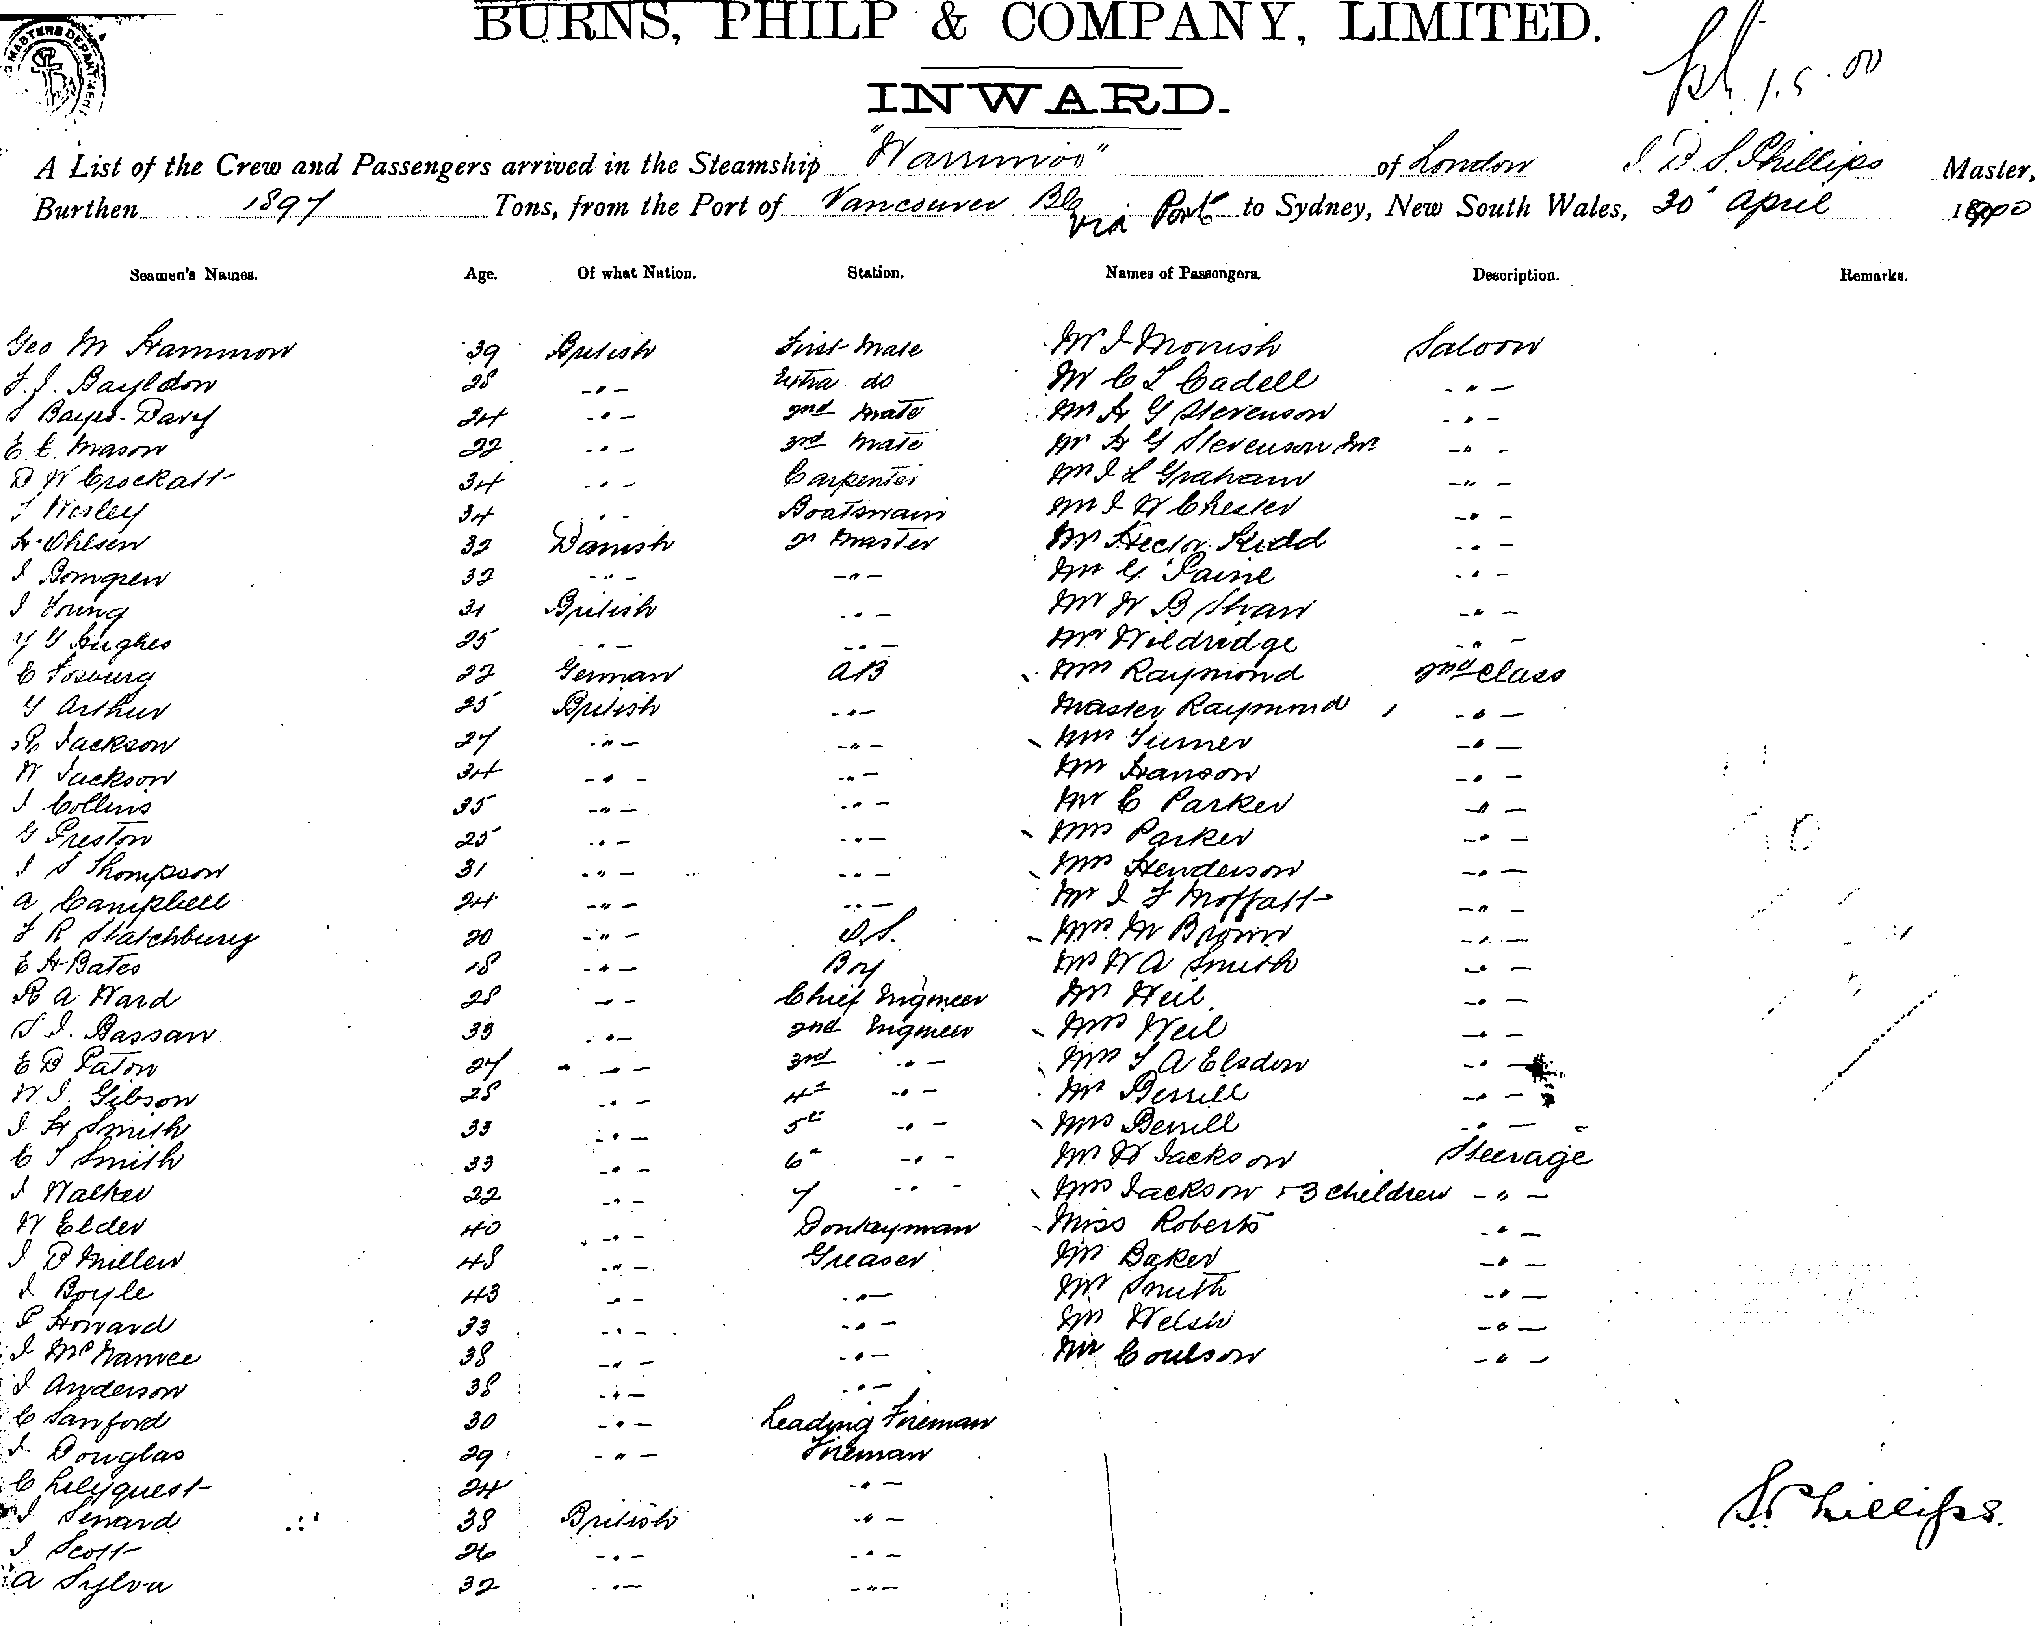 BURNS, PHILP & COMPANY, LIMITED.
INWARD.
1.5.00
A List of the Crew and Passengers arrived in the Steamship "Warrimoo" of London J. D. S. Phillips Master,
Burthen 1897 Tons, from the Port of Vancouver BC via Ports to Sydney, New South Wales, 30 April 1900
Seamen's Names. Age. Of what Nation. Station. Names of Passengers. Description. Remarks.
Geo M Hammon 39 British First Mate Mr J Morrish Saloon
F. J. Bayldon 28 -"- Extra do Mr C L Cadell -"-
Bayes-Davy 24 -"- 2nd Mate Mr H G Stevenson -"-
E. E. Mason 22 -"- 3rd Mate Mr H G Stevenson Jnr -"-
D W Crockatt 34 -"- Carpenter Mr J L Graham -"-
Wesley 34 -"- Boatswain Mr J W Chester -"-
H. Ohlsen 32 Danish Qr Master Mr Hector Kidd -"-
J Bomgren 32 -"- -"- Mr G. Paine -"-
J Young 31 British -"- Mr W B Shaw -"-
Hughes 25 -"- -"- Mr Wildridge -"-
C Fosburg 22 German AB Mrs Raymond 2nd Class
G Arthur 25 British -"- Master Raymond -"-
R Jackson 27 -"- -"- Mrs Turner -"-
W Jackson 34 -"- -"- Mr Hanson -"-
J Collins 35 -"- -"- Mr C Parker -"-
G Preston 25 -"- -"- Mrs Parker -"-
J S Thompson 31 -"- -"- Mrs Henderson -"-
A Campbell 24 -"- -"- Mr J F Moffatt -"-
F R Statchbury 20 -"- O.S. Mrs M Brown -"-
E H Bates 18 -"- Boy Mr W A Smith -"-
R A Ward 28 -"- Chief Engineer Mr Weil -"-
S. J. Bassan 33 -"- 2nd Engineer Mrs Weil -"-
E D Paton 27 -"- 3rd -"- Mrs S A Elsdon -"-
W. J. Gibson 28 -"- 4th -"- Mr Berrill -"-
J H Smith 33 -"- 5th -"- Mrs Berrill -"-
C S Smith 33 -"- 6th -"- Mr W Jackson Steerage
J Walker 22 -"- 7 -"- Mrs Jackson + 3 children -"-
W Elder 40 -"- Donkeyman Miss Roberts -"-
J D Millen 48 -"- Greaser Mr Baker -"-
J Boyle 43 -"- -"- Mr Smith -"-
P Howard 33 -"- -"- Mr Welsh -"-
J McNamee 38 -"- -"- Mr Coulson -"-
J Anderson 38 -"- -"-
C Sanford 30 -"- Leading Fireman
J Douglas 29 -"- Fireman
C Lilyquest 24 -"-
J Senard 38 British -"-
J Scott 26 -"- -"-
A Sylva 32 -"- -"-
Phillips.